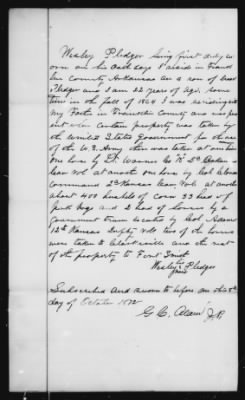 Wesley Pledger being first duly sw
orn on his Oath says I reside in Frank
lin county Arkansas am a son of
Pledger and I am 22 years of age some
time in the fall of 1864 I was residing at
my Father in Franklin County and was pres
ent when certain property was taken by
the United States Government for the use
of the U.S. Army there was taken at one time
one horse by Lt. Warner Co K 2d
at another one horse by Col
command 2d Kansas Cav Vols at another
about 400 bundles of corn 33 head of
pork hogs and 2 head of horses by a
Government train escorted by Col Adams
12th Kansas Infty vols two of the horses
were taken to Clarksville and the rest
of the property to Fort Smith
Wesley Pledger
Subscribed and sworn to before me this
day of October 1872
J.P.